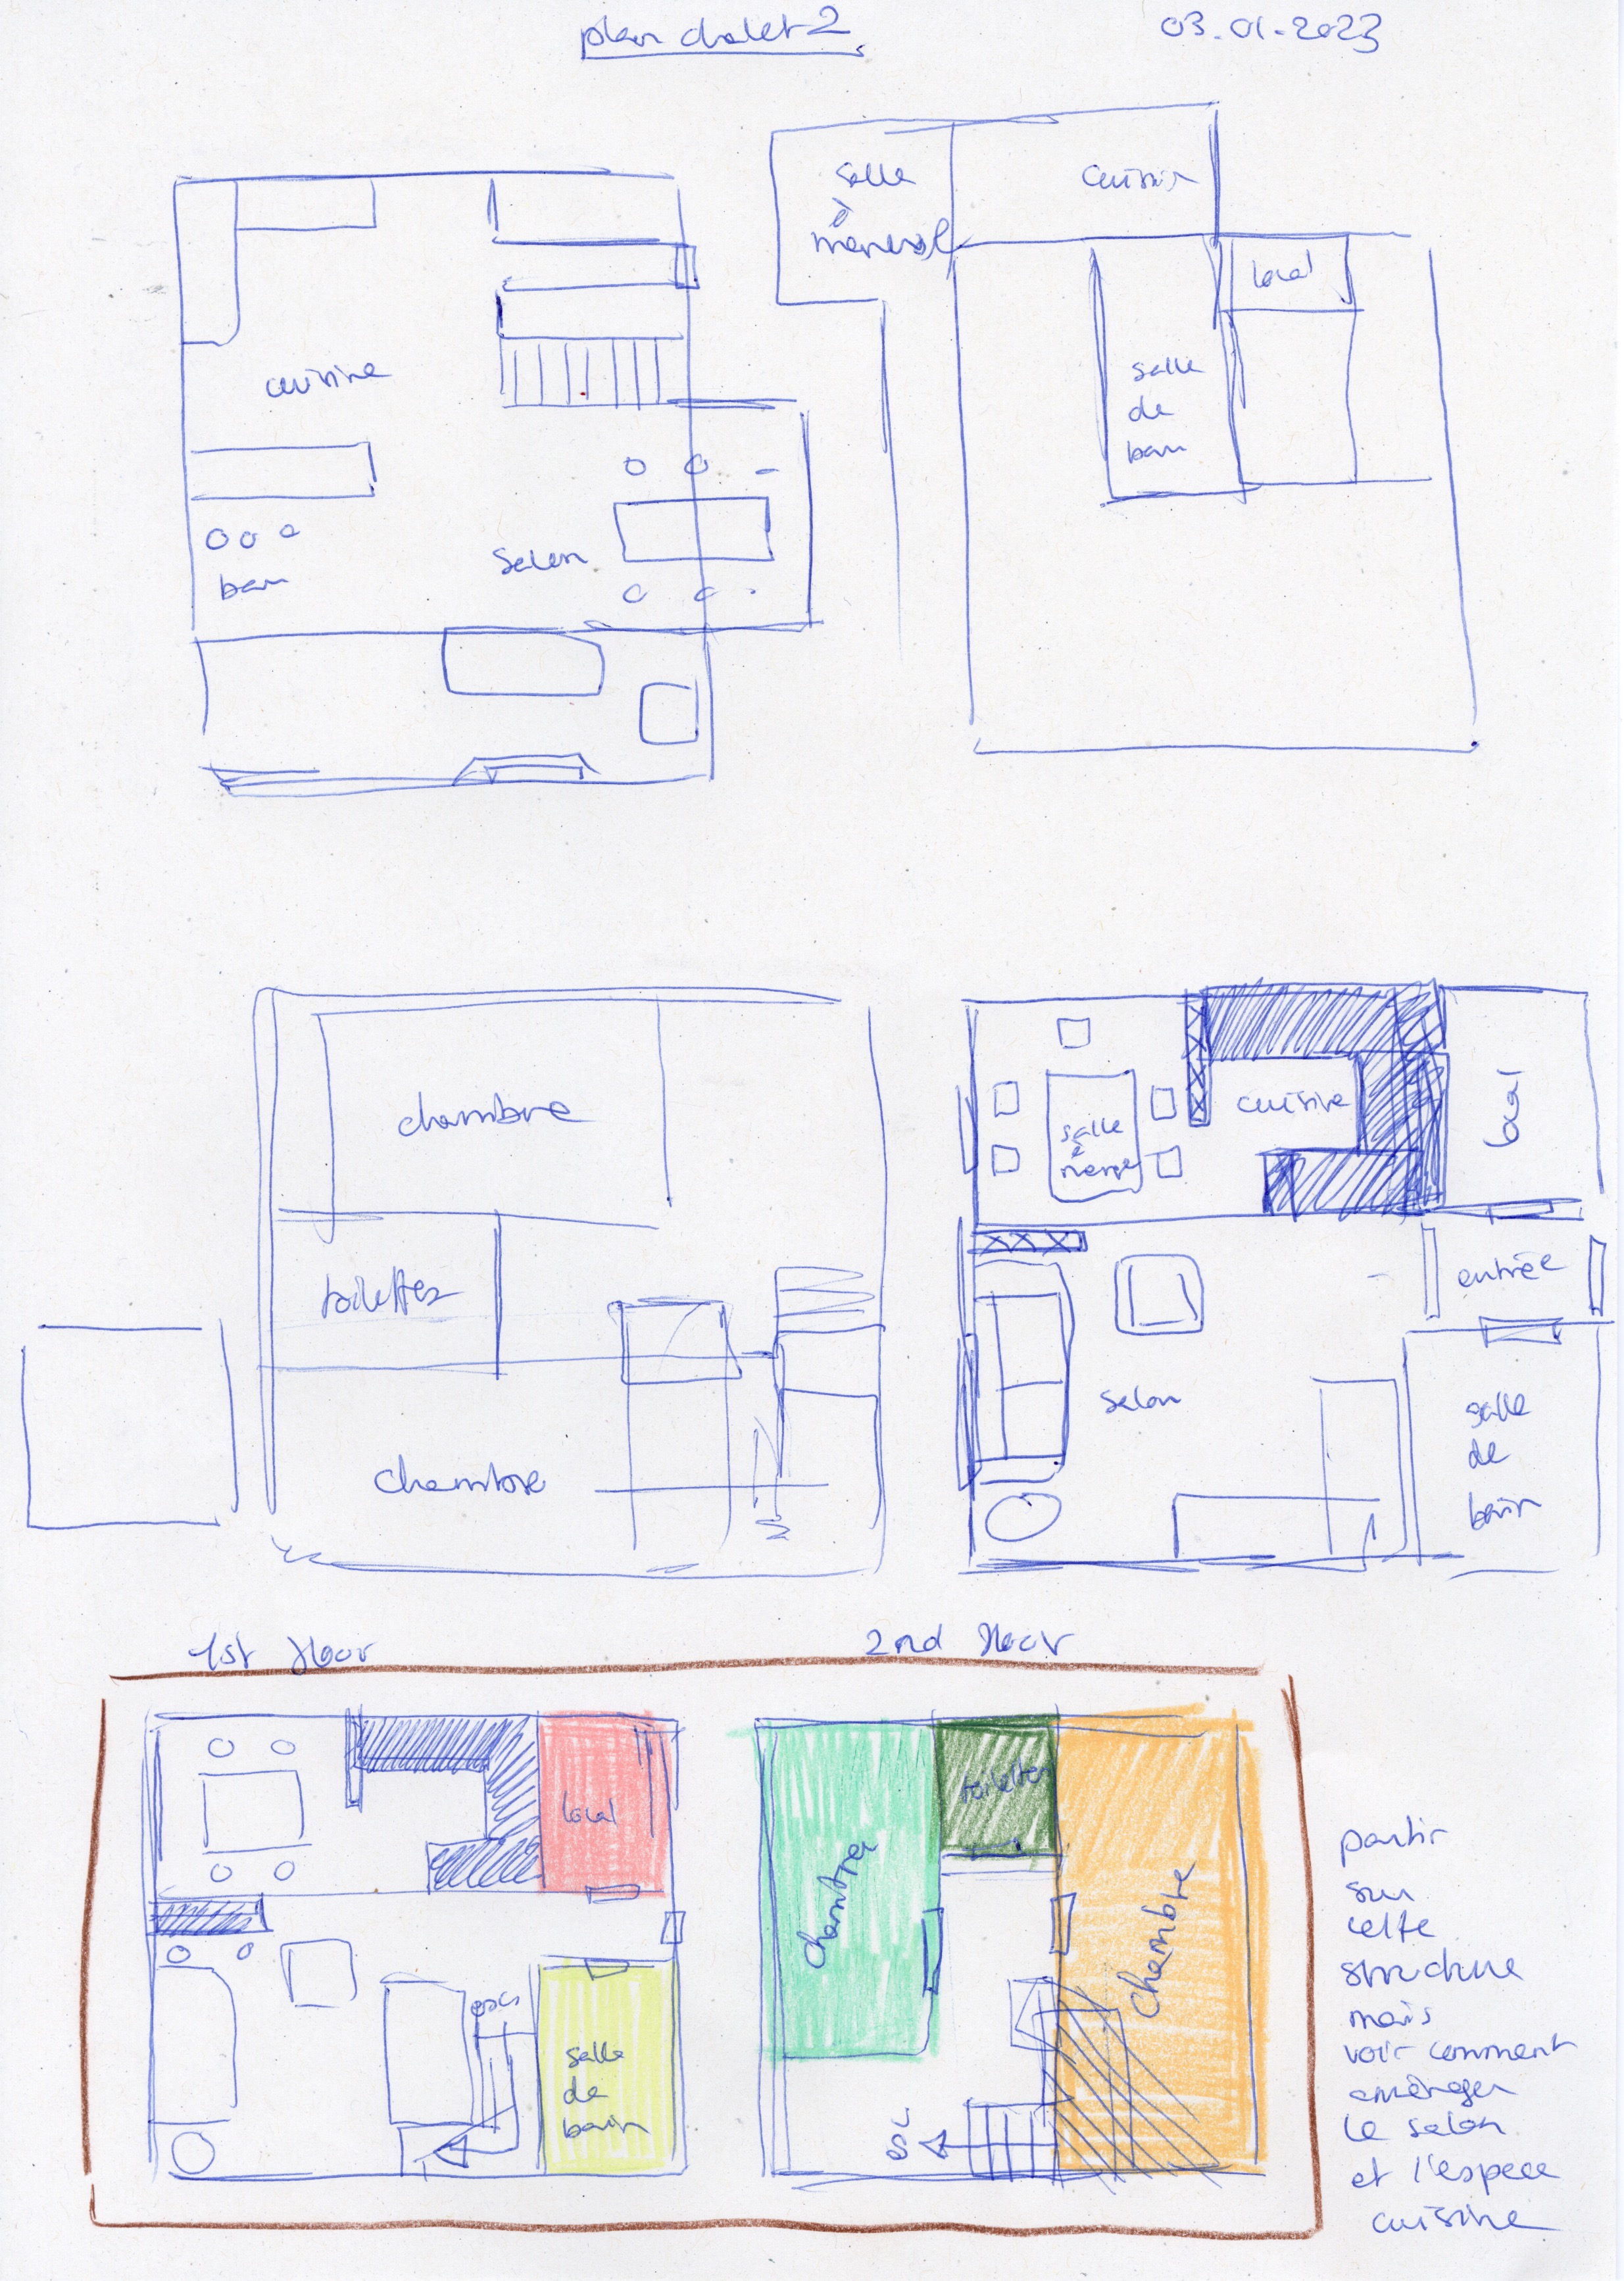 plan chalet 2
03.01.2023
cuisine
bar
salon
salle
à
manger
cuisine
local
salle
de
bain
chambre
toilettes
chambre
salle
à
manger
cuisine
local
entrée
salon
salle
de
bain
1st floor
2nd floor
local
esc
salle
de
bain
chambre
toilettes
chambre
partir
sur
cette
structure
mais
voir comment
aménager
le salon
et l'espace
cuisine